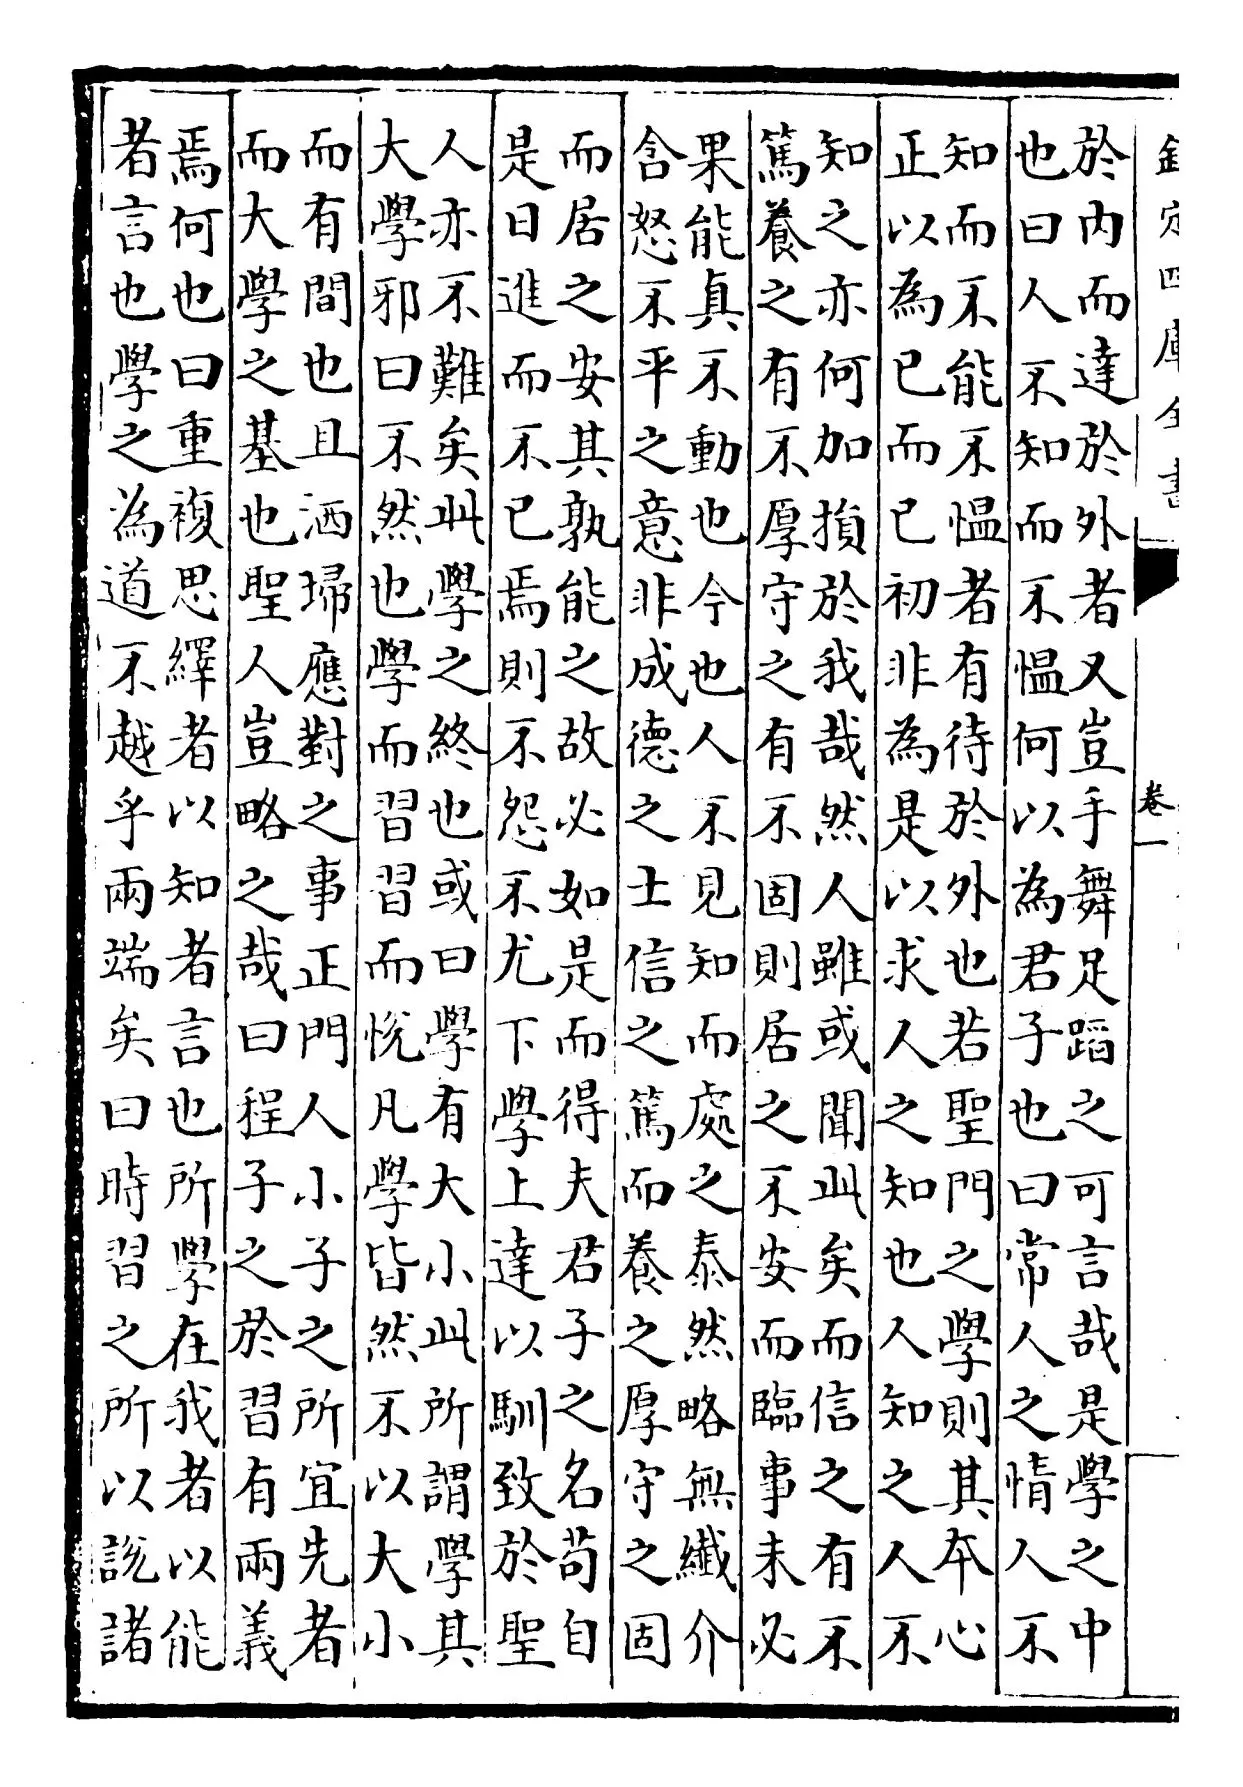 欽定四庫全書
卷一
於內而達於外者又豈手舞足蹈之可言哉是學之中
也曰人不知而不愠何以為君子也曰常人之情人不
知而不能不愠者有待於外也若聖門之學則其本心
正以為已而已初非為是以求人之知也人知之人不
知之亦何加損於我哉然人雖或聞此矣而信之有不
篤養之有不厚守之有不固則居之不安而臨事未必
果能真不動也今也人不見知而處之泰然略無纖介
含怒不平之意非成德之士信之篤而養之厚守之固
而居之安其孰能之故必如是而得夫君子之名苟自
是日進而不已焉則不怨不尤下學上達以馴致於聖
人亦不難矣此學之終也或曰學有大小此所謂學其
大學邪曰不然也學而習習而悅凡學皆然不以大小
而有間也且洒埽應對之事正門人小子之所宜先者
而大學之基也聖人豈略之哉曰程子之於習有兩義
焉何也曰重複思繹者以知者言也所學在我者以能
者言也學之為道不越乎兩端矣曰時習之所以說諸